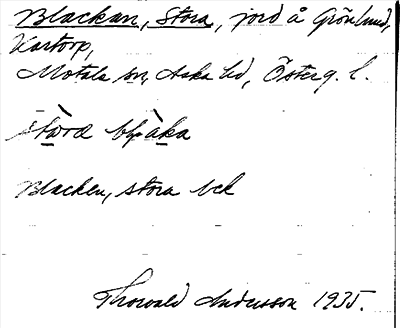 Blackan, Stora, jord å Grönlund,
Kartorp,
Motala sn, Aska hd, Österg. l.
Blacken, stora bck
Thorvald Andersson 1935.